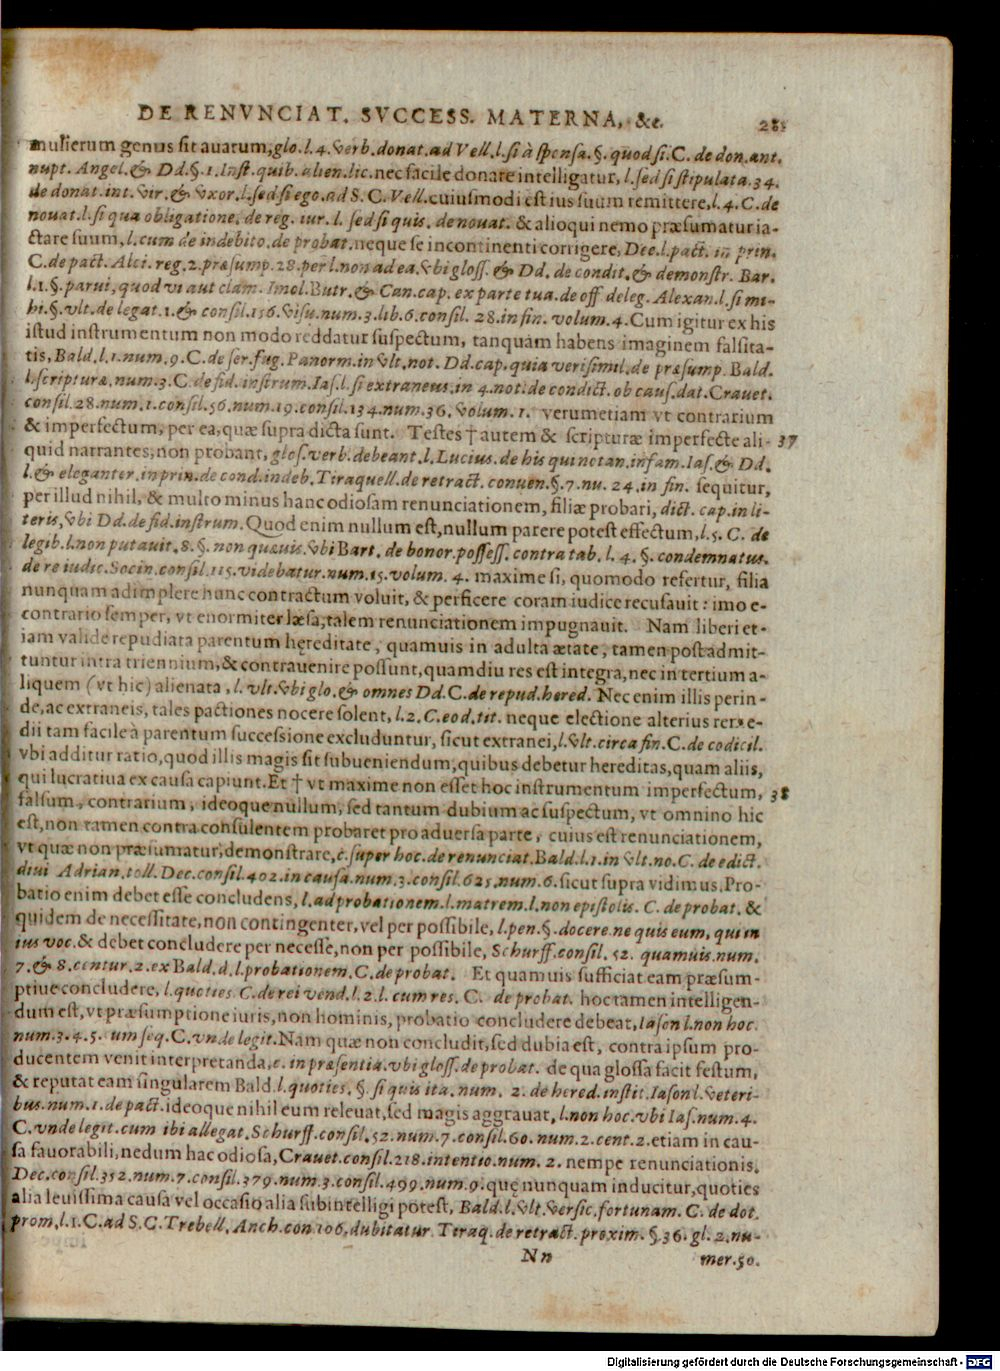 DE RENVNCIAT. SVCCESS. MATERNA, &c. 281
mulierum genus sit auarum, glo. l. 4. verb. donat. ad Vell. l. si à sponsa. §. quod si. C. de don. ant.
nupt. Angel. & Dd. §. 1. Inst. quib. alien. lic. nec facile donare intelligatur, l. sed si stipulata. 34.
de donat. int. vir. & vxor. l. sed si ego. ad S. C. Vell. cuiusmodi est ius suum remittere, l. 4. C. de
nouat. l. si qua obligatione. de reg. iur. l. sed si quis. de nouat. & alioqui nemo præsumatur ia-
ctare suum, l. cum de indebito. de probat. neque se incontinenti corrigere, Dec. l. pact. in prin.
C. de pact. Alci. reg. 2. præsump. 28. per l. non ad ea. vbi gloss. & Dd. de condit. & demonstr. Bar.
l. 1. §. parui, quod vi aut clam. Imol. Butr. & Can. cap. ex parte tua. de off deleg. Alexan. l. si mi-
hi. §. vlt. de legat. 1. & consil. 156. visu. num. 3. lib. 6. consil. 28. in fin. volum. 4. Cum igitur ex his
istud instrumentum non modo reddatur suspectum, tanquam habens imaginem falsita-
tis, Bald. l. 1. num. 9. C. de ser. fug. Panorm. in vlt. not. Dd. cap. quia verisimil. de præsump. Bald.
l. scripturæ. num. 3. C. de fid. instrum. Ias. l. si extraneus. in 4. not. de condict. ob caus. dat. Crauet.
consil. 28. num. 1. consil. 56. num. 19. consil. 134. num. 36. volum. 1. verumetiam vt contrarium
& imperfectum, per ea, quæ supra dicta sunt. Testes † autem & scripturæ imperfecte ali- 37
quid narrantes, non probant, glos. verb. debeant. l. Lucius. de his qui notan. infam. Ias. & Dd.
l. & eleganter. in prin. de cond. indeb. Tiraquell. de retract. conuen. §. 7. nu. 24. in fin. sequitur,
per illud nihil, & multo minus hanc odiosam renunciationem, filiæ probari, dict. cap. in li-
teris, vbi Dd. de fid. instrum. Quod enim nullum est, nullum parere potest effectum, l. 5. C. de
legib. l. non putauit. 8. §. non quæuis. vbi Bart. de bonor. possess. contra tab. l. 4. §. condemnatus.
de re iudic. Socin. consil. 115. videbatur. num. 15. volum. 4. maxime si, quomodo refertur, filia
nunquam adimplere hunc contractum voluit, & perficere coram iudice recusauit: imo e-
contrario semper, vt enormiter læsa, talem renunciationem impugnauit. Nam liberi et-
iam valide repudiata parentum hęreditate, quamuis in adulta ætate, tamen post admit-
tuntur intra triennium, & contrauenire possunt, quamdiu res est integra, nec in tertium a-
liquem (vt hic) alienata, l. vlt. vbi glo. & omnes Dd. C. de repud. hered. Nec enim illis perin-
de, ac extraneis, tales pactiones nocere solent, l. 2. C. eod. tit. neque electione alterius reme-
dii tam facile à parentum successione excluduntur, sicut extranei, l. vlt. circa fin. C. de codicil.
vbi additur ratio, quod illis magis sit subueniendum, quibus debetur hereditas, quam aliis,
qui lucratiua ex causa capiunt. Et † vt maxime non esset hoc instrumentum imperfectum, 38
falsum, contrarium, ideoque nullum, sed tantum dubium ac suspectum, vt omnino hic
est, non tamen contra consulentem probaret pro aduersa parte, cuius est renunciationem,
vt quæ non præsumatur, demonstrare, c. super hoc. de renunciat. Bald. l. 1. in vlt. no. C. de edict.
diui Adrian. toll. Dec. consil. 402. in causa. num. 3. consil. 625. num. 6. sicut supra vidimus. Pro-
batio enim debet esse concludens, l. ad probationem. l. matrem. l. non epistolis. C. de probat. &
quidem de necessitate, non contingenter, vel per possibile, l. pen. §. docere. ne quis eum, qui in
ius voc. & debet concludere per necesse, non per possibile, Schurff. consil. 52. quamuis. num.
7. & 8. centur. 2. ex Bald. d. l. probationem. C. de probat. Et quamuis sufficiat eam præsum-
ptiue concludere, l. quoties C. de rei vend. l. 2. l. cum res. C. de probat. hoc tamen intelligen-
dum est, vt præsumptione iuris, non hominis, probatio concludere debeat, Iason l. non hoc.
num. 3. 4. 5. um seq. C. vnde legit. Nam quæ non concludit, sed dubia est, contra ipsum pro-
ducentem venit interpretanda, c. in præsentia. vbi gloss. de probat. de qua glossa facit festum,
& reputat eam singularem Bald. l. quoties. §. si quis ita. num. 2. de hered. instit. Iason l. veteri-
bus. num. 1. de pact. ideoque nihil eum releuat, sed magis aggrauat, l. non hoc. vbi Ias. num. 4.
C. vnde legit. cum ibi allegat. Schurff. consil. 52. num. 7. consil. 60. num. 2. cent. 2. etiam in cau-
sa fauorabili, nedum hac odiosa, Crauet. consil. 218. intentio. num. 2. nempe renunciationis.
Dec. consil. 352. num. 7. consil. 379. num. 3. consil. 499. num. 9. quę nunquam inducitur, quoties
alia leuissima causa vel occasio alia subintelligi potest, Bald. l. vlt. versic. fortunam. C. de dot.
prom. l. 1. C. ad S. C. Trebell. Anch. con. 106. dubitatur. Tiraq. de retract. proxim. §. 36. gl. 2. nu-
Nn mer. 50.
Digitalisierung gefördert durch die Deutsche Forschungsgemeinschaft - DFG